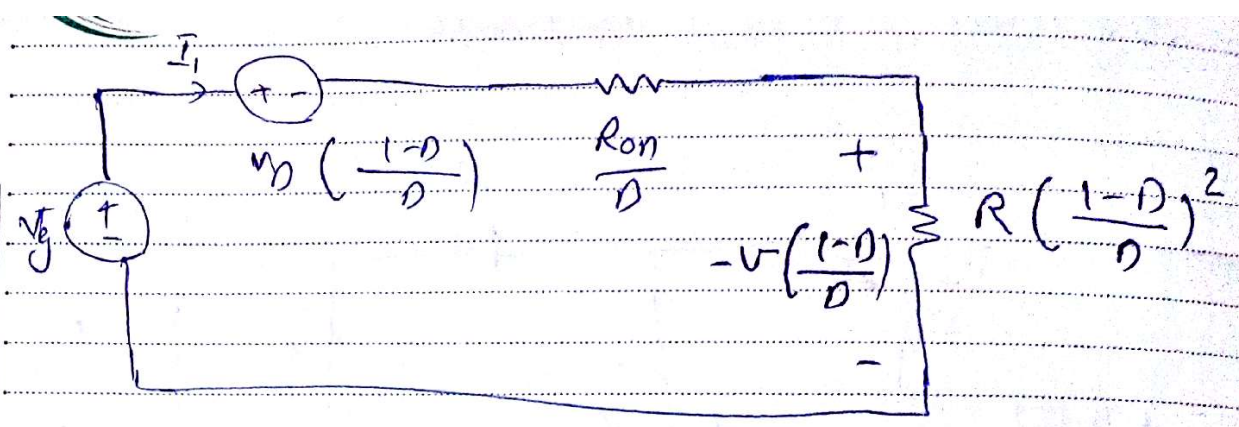 I₁
+ -
V_D ( (1-D)/D )
Ron/D
+
Vg
+
-
-V ( (1-D)/D )
R ( (1-D)/D )²
-